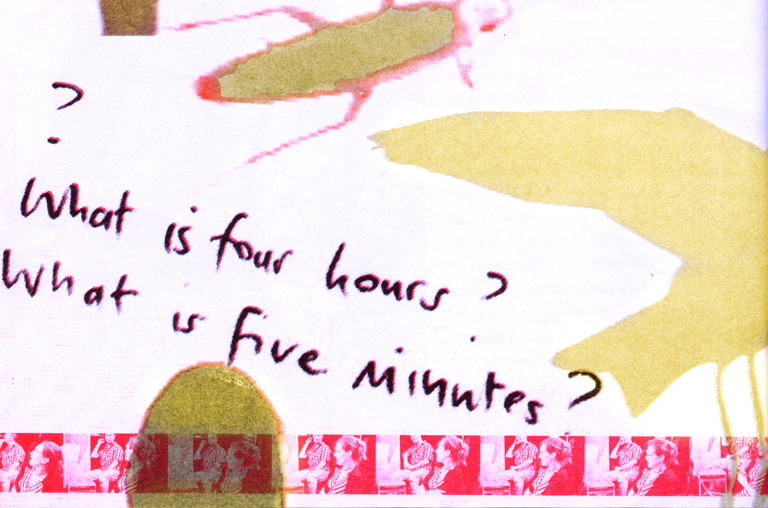 ?
What is four hours?
What is five minutes?